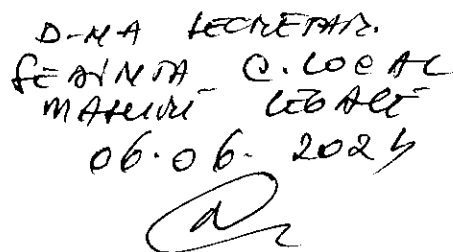 D-NA SECRETAR.
ŞEDINTA C.LOCAL
MASURI LEGALE
06.06. 2024